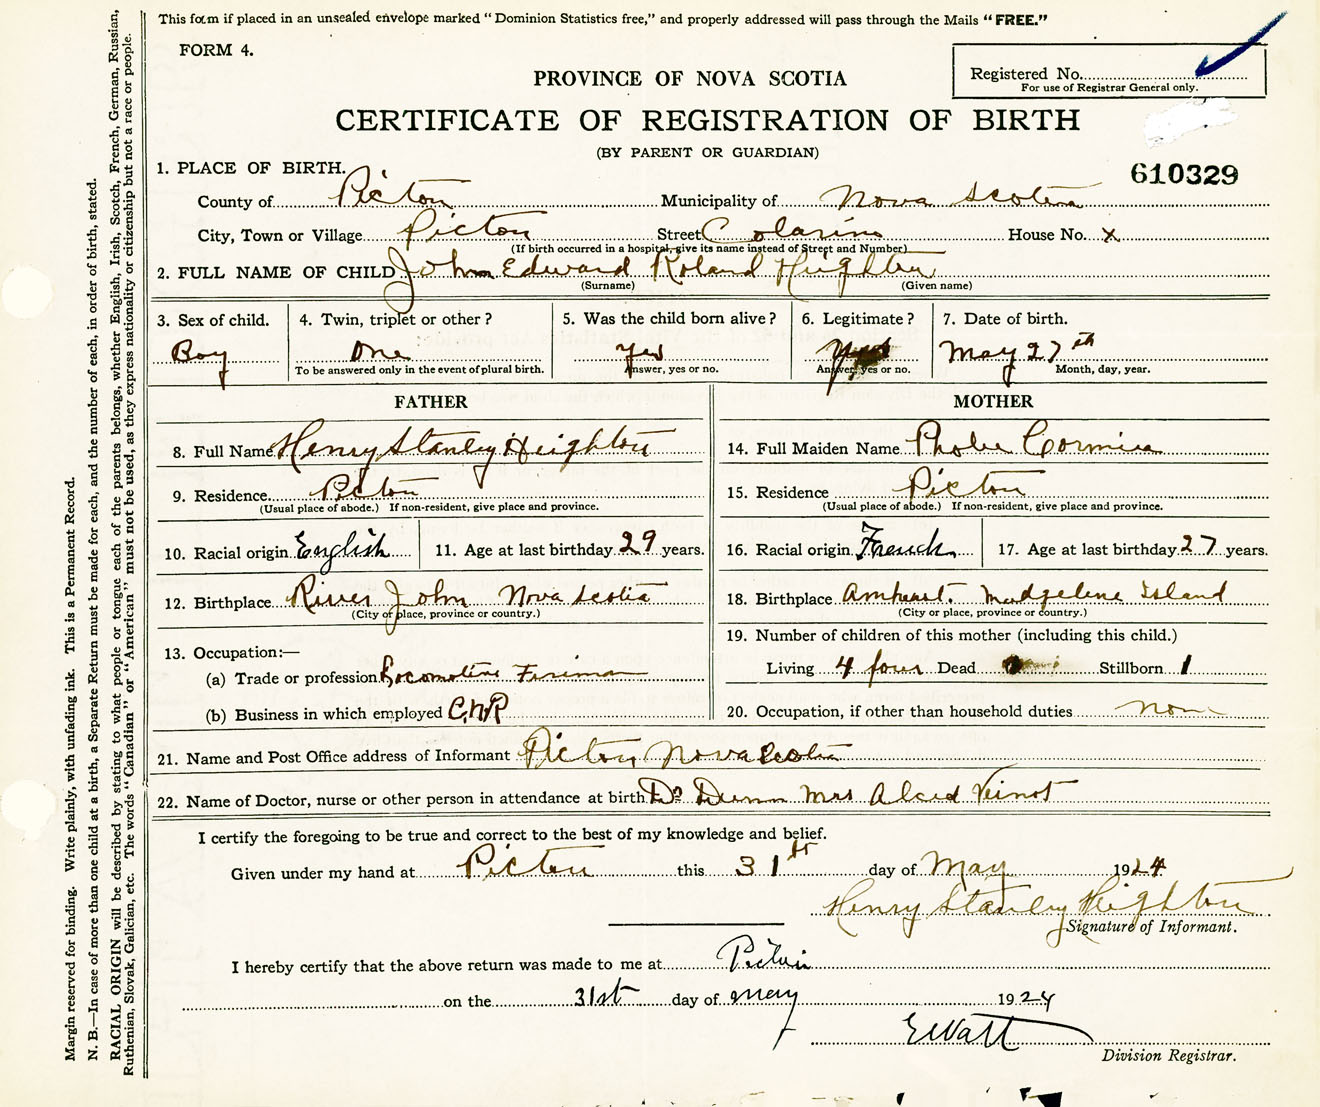 This form if placed in an unsealed envelope marked "Dominion Statistics free," and properly addressed will pass through the Mails "FREE."
FORM 4.
Registered No.
For use of Registrar General only.
PROVINCE OF NOVA SCOTIA
CERTIFICATE OF REGISTRATION OF BIRTH
(BY PARENT OR GUARDIAN)
610329
1. PLACE OF BIRTH.
County of Picton Municipality of Nova Scotia
City, Town or Village Picton Street House No. x
(If birth occurred in a hospital, give its name instead of Street and Number)
2. FULL NAME OF CHILD John Edward Roland Heighton
(Surname) (Given name)
3. Sex of child. 4. Twin, triplet or other? 5. Was the child born alive? 6. Legitimate? 7. Date of birth.
Boy One Yes May 27th
To be answered only in the event of plural birth. Answer, yes or no. Answer, yes or no. Month, day, year.
FATHER
8. Full Name Henry Stanley Heighton
9. Residence. Picton
(Usual place of abode.) If non-resident, give place and province.
10. Racial origin English 11. Age at last birthday 29 years.
12. Birthplace River John Nova Scotia
(City or place, province or country.)
13. Occupation:—
(a) Trade or profession Locomotive Fireman
(b) Business in which employed C.N.R
MOTHER
14. Full Maiden Name Phobe Cormier
15. Residence Picton
(Usual place of abode.) If non-resident, give place and province.
16. Racial origin French 17. Age at last birthday 27 years.
18. Birthplace Amherst. Island
(City or place, province or country.)
19. Number of children of this mother (including this child.)
Living 4 four Dead Stillborn 1
20. Occupation, if other than household duties none
21. Name and Post Office address of Informant Picton Nova Scotia
22. Name of Doctor, nurse or other person in attendance at birth Dr Dunn Mrs Veinot
I certify the foregoing to be true and correct to the best of my knowledge and belief.
Given under my hand at Picton this 31st day of May 1924
Henry Stanley Heighton
Signature of Informant.
I hereby certify that the above return was made to me at Picton
on the 31st day of May 1924
EWatt
Division Registrar.
Margin reserved for binding. Write plainly, with unfading ink. This is a Permanent Record.
N. B.—In case of more than one child at a birth, a Separate Return must be made for each, and the number of each, in order of birth, stated.
RACIAL ORIGIN will be described by stating to what people or tongue each of the parents belongs, whether English, Irish, Scotch, French, German, Russian,
Ruthenian, Slovak, Galician, etc. The words "Canadian" or "American" must not be used, as they express nationality or citizenship but not a race or people.